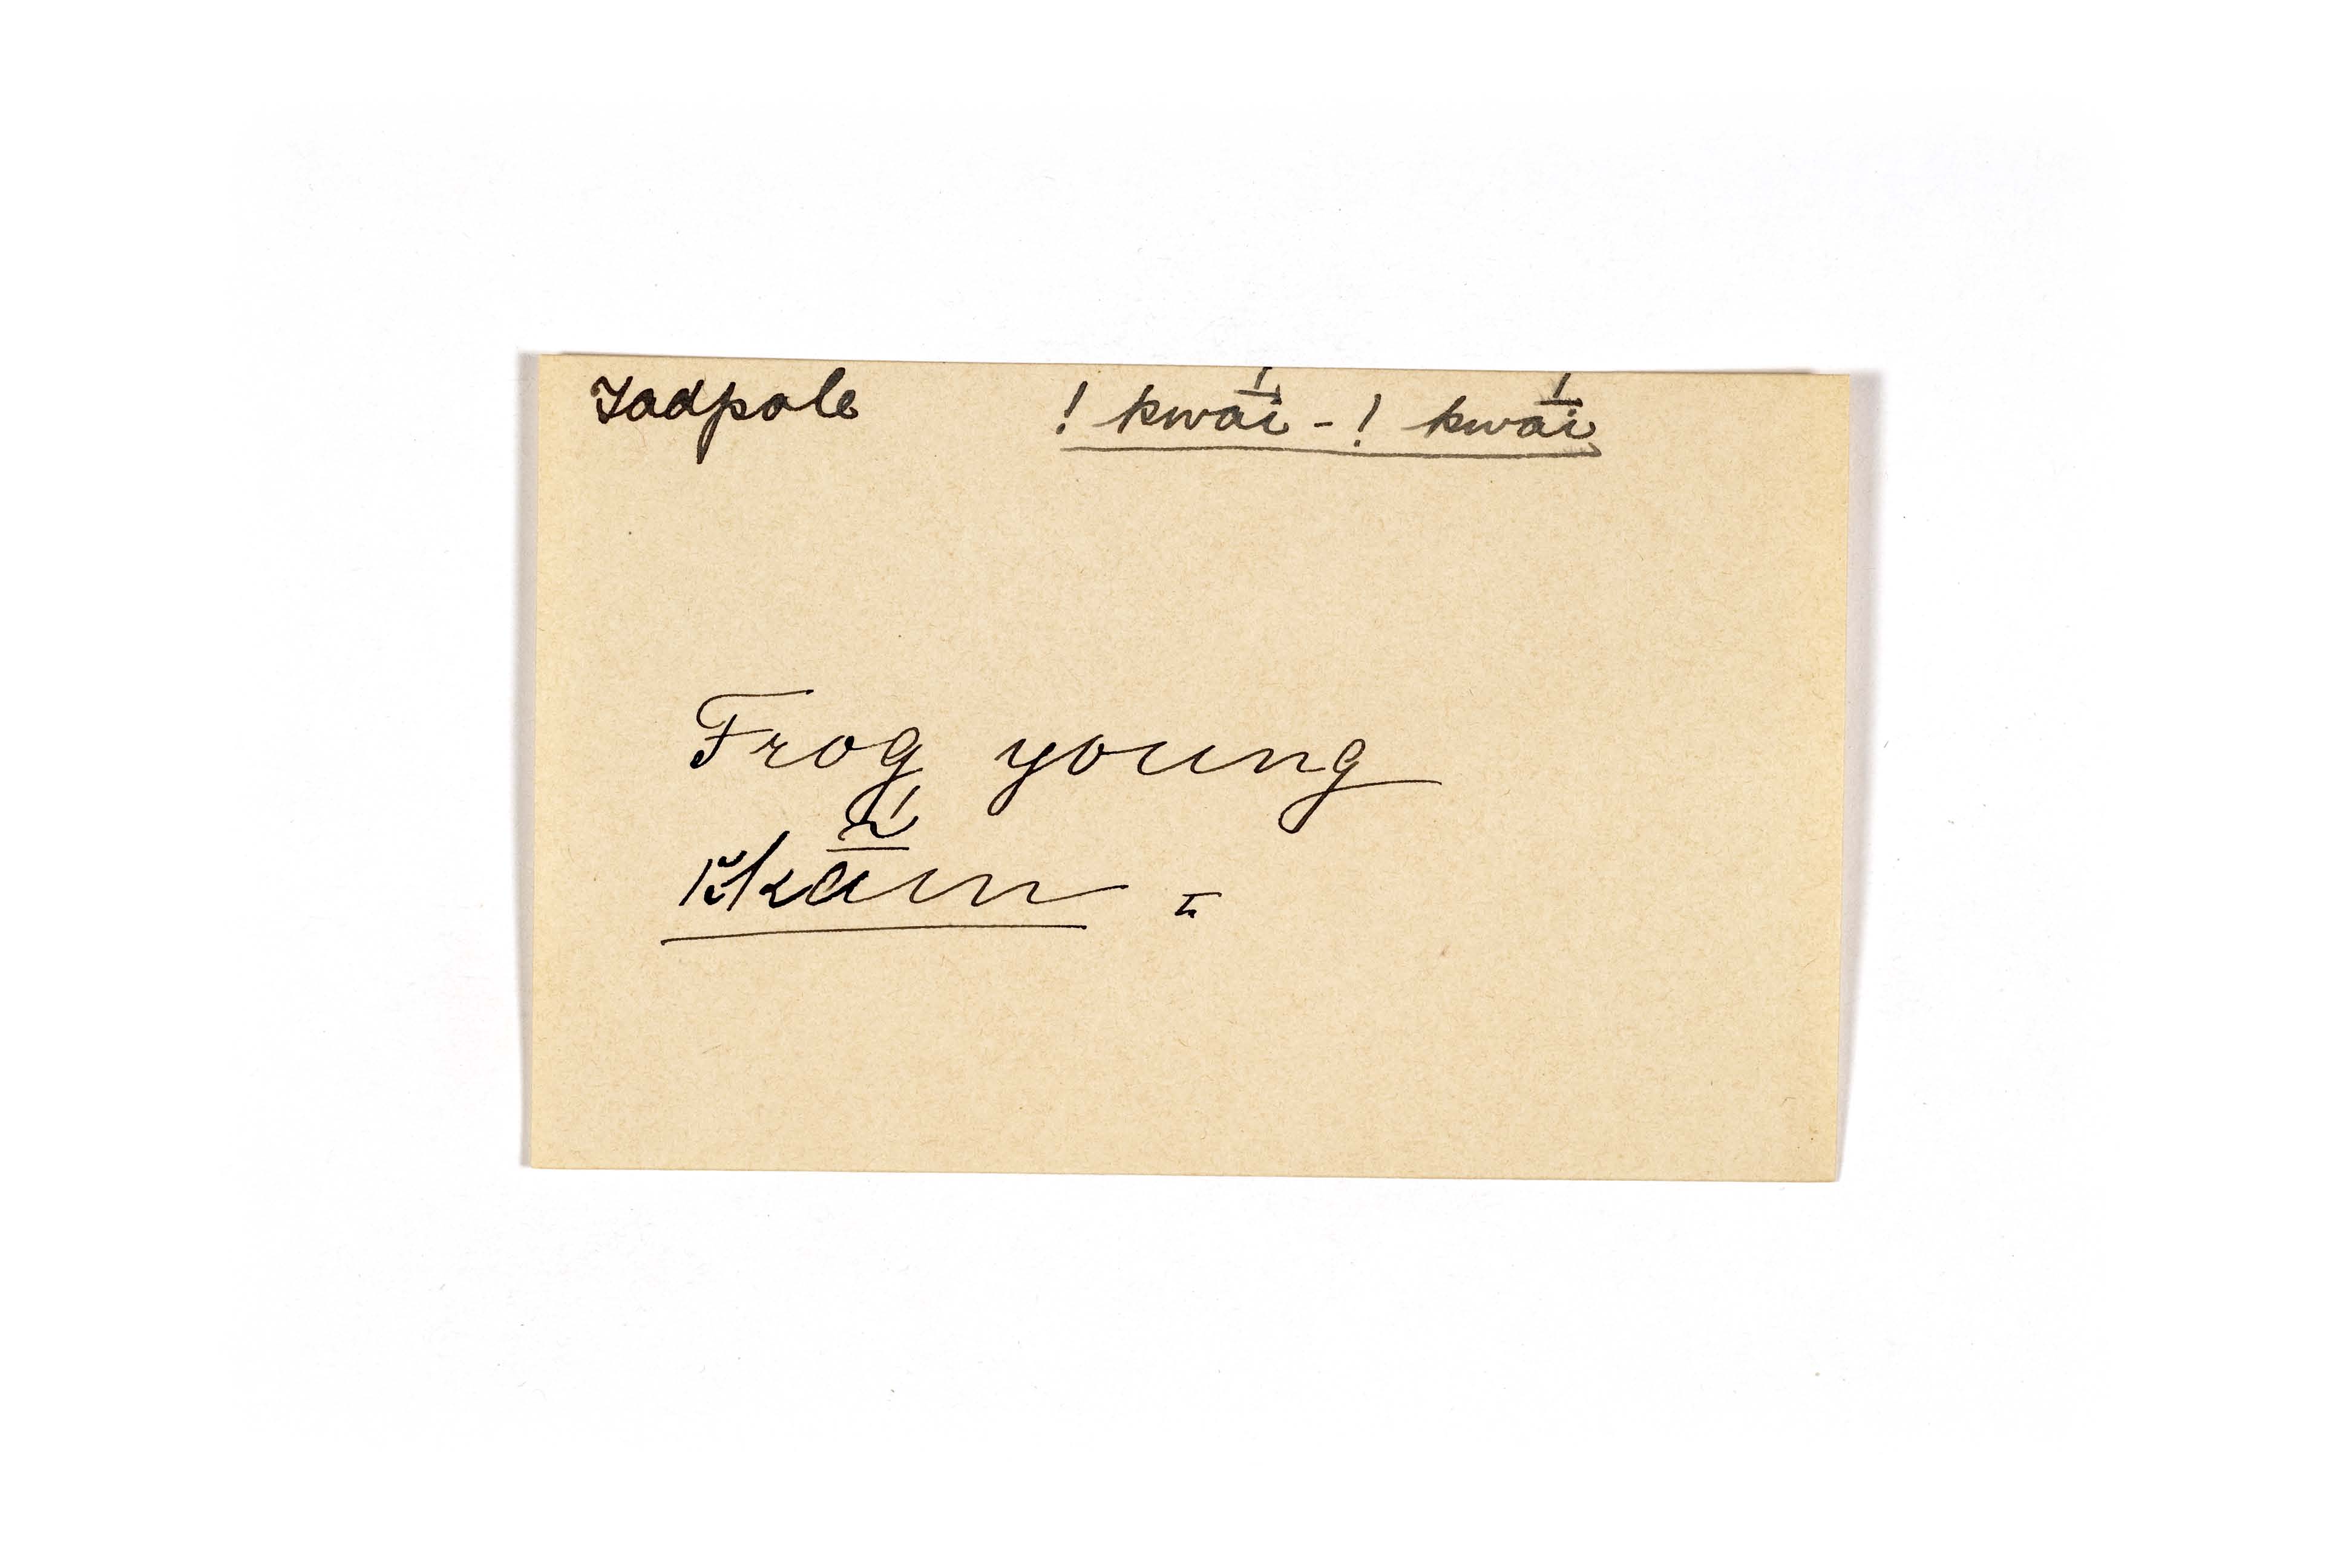 Tadpole ! kwā́i - ! kwā́i
Frog young